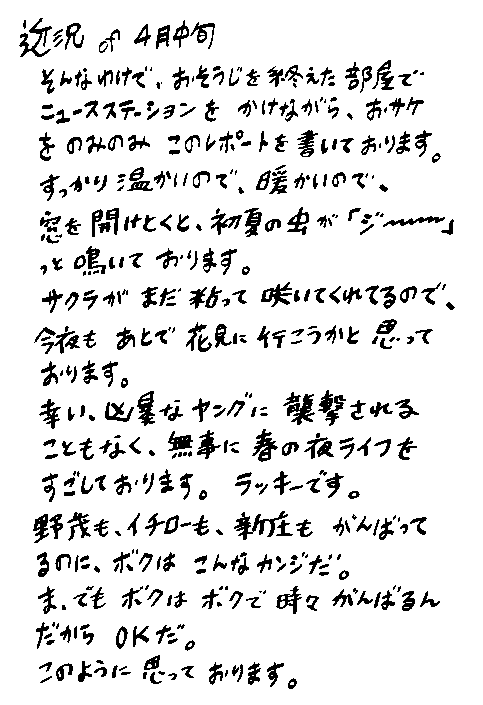 近況 of 4月中旬
そんなわけで、おそうじを終えた部屋で
ニュースステーションを かけながら、おサケ
を のみのみ このレポートを書いております。
すっかり温かいので、暖かいので、
窓を開けとくと、初夏の虫が「ジ〜〜〜」
っと鳴いております。
サクラが まだ粘って咲いてくれてるので、
今夜も あとで花見に行こうかと思って
おります。
幸い、凶暴なヤングに襲撃される
こともなく、無事に春の夜ライフを
すごしております。 ラッキーです。
野茂も、イチローも、新庄も がんばって
るのに、ボクは こんなカンジだ。
ま、でも ボクは ボクで時々がんばるん
だから OKだ。
このように思っております。